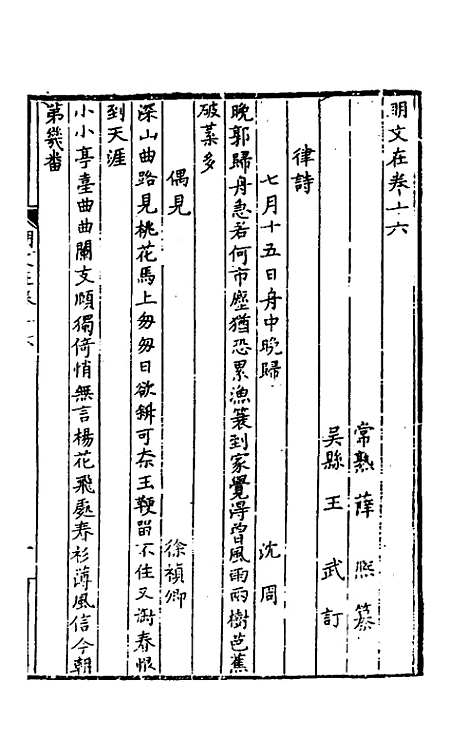 明文在卷十六
常熟薛熙纂
吳縣王武訂
律詩
七月十五日舟中晚歸 沈周
晚郭歸舟急若何市塵猶恐累漁蓑到家覺得曾風雨兩樹芭蕉
破葉多
偶見 徐禎卿
深山曲路見桃花馬上匆匆日欲斜可奈玉鞭留不住又銜春恨
到天涯
小小亭臺曲曲闌支頤獨倚悄無言楊花飛處春衫薄風信今朝
第幾番
明文在卷十六